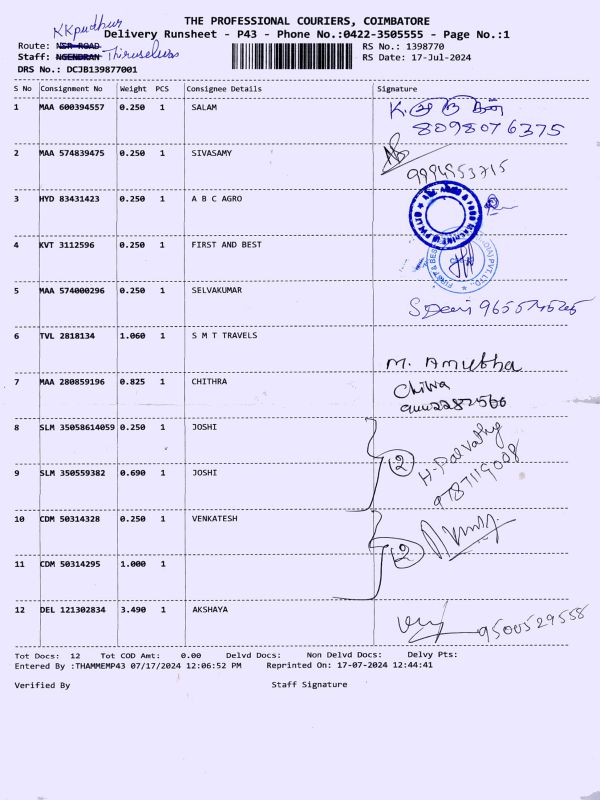 THE PROFESSIONAL COURIERS, COIMBATORE
KKpudhur
Delivery Runsheet - P43 - Phone No.:0422-3505555 - Page No.:1
Route: NSR ROAD
RS No.: 1398770
Staff: NGENDRAN Thiruselvan
RS Date: 17-Jul-2024
DRS No.: DCJB139877001
S No Consignment No Weight PCS Consignee Details Signature
1 MAA 600394557 0.250 1 SALAM
8098076375
2 MAA 574839475 0.250 1 SIVASAMY
9994953715
3 HYD 83431423 0.250 1 A B C AGRO
4 KVT 3112596 0.250 1 FIRST AND BEST
5 MAA 574000296 0.250 1 SELVAKUMAR
6 TVL 2818134 1.060 1 S M T TRAVELS
M. Amutha
7 MAA 280859196 0.825 1 CHITHRA
Chitra
8 SLM 35058614059 0.250 1 JOSHI
2 H. Parvathy
9 SLM 350559382 0.690 1 JOSHI
9787119008
10 CDM 50314328 0.250 1 VENKATESH
2
11 CDM 50314295 1.000 1
12 DEL 121302834 3.490 1 AKSHAYA
9500529558
Tot Docs: 12 Tot COD Amt: 0.00 Delvd Docs: Non Delvd Docs: Delvy Pts:
Entered By :THAMMEMP43 07/17/2024 12:06:52 PM Reprinted On: 17-07-2024 12:44:41
Verified By Staff Signature